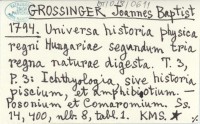 GROSSINGER Joannes Baptist
1794. Universa historia physica
regni Hungariae segundum tria
regna naturae digesta. T. 3,
P. 3: Ichthyologia, sive historia
piscium, et Amphibiorum. —
Posonium et Comaromium. Ss.
14, 400, nlb. 8, tabl. 1. KMS. ★